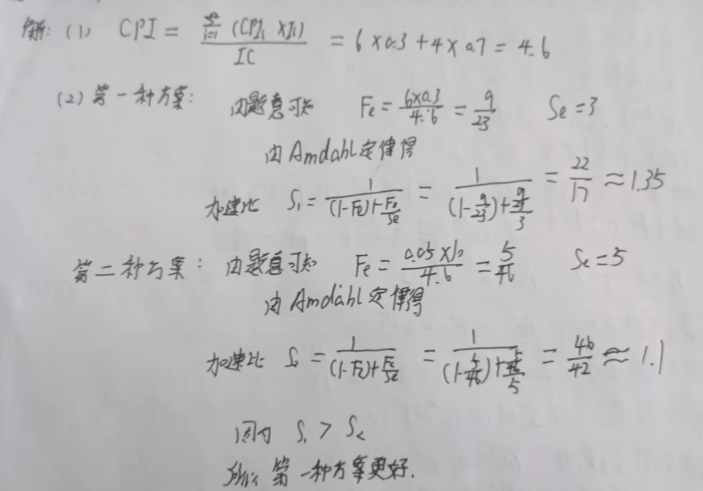 解: (1) CPI = \frac{\sum_{i=1}^{n} (CPI_i × I_i)}{IC} = 6×0.3+4×0.7 = 4.6
(2) 第一种方案: 由题意可知 Fe = \frac{6×0.3}{4.6} = \frac{9}{23} Se=3
由 Amdahl 定律得
加速比 S_1 = \frac{1}{(1-Fe)+\frac{Fe}{Se}} = \frac{1}{(1-\frac{9}{23})+\frac{\frac{9}{23}}{3}} = \frac{22}{17} ≈ 1.35
第二种方案: 由题意可知 Fe = \frac{0.05×10}{4.6} = \frac{5}{46} Se=5
由 Amdahl 定律得
加速比 S_2 = \frac{1}{(1-Fe)+\frac{Fe}{Se}} = \frac{1}{(1-\frac{5}{46})+\frac{\frac{5}{46}}{5}} = \frac{46}{42} ≈ 1.1
因为 S_1 > S_2
所以 第一种方案更好.